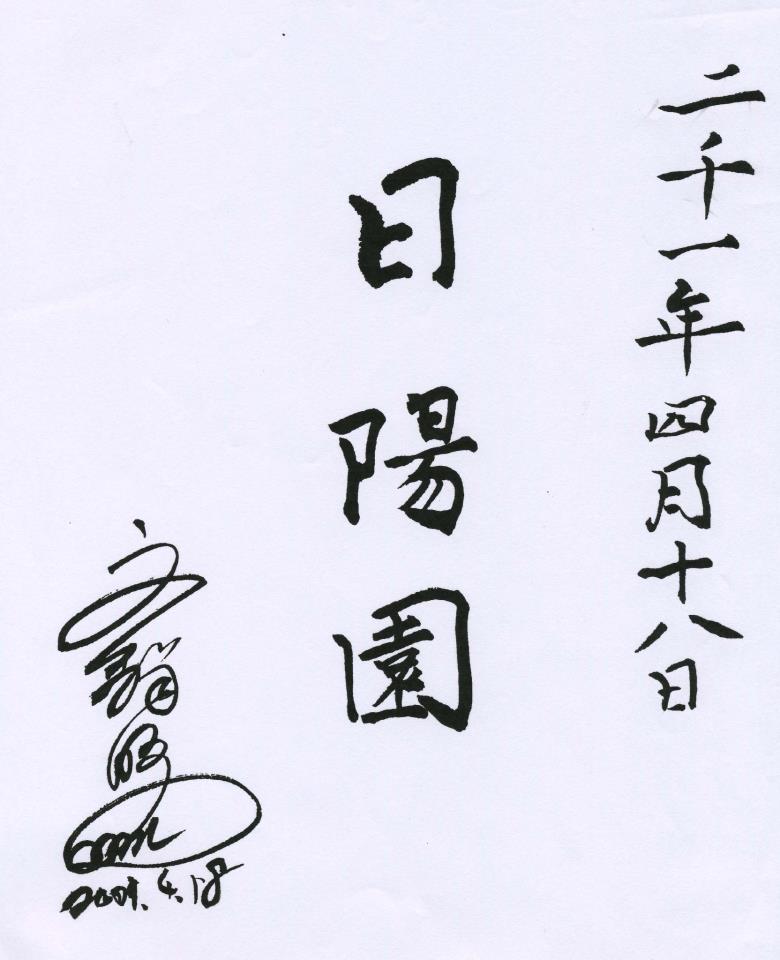 二千一年四月十八日
日陽園
文鮮明
2001.4.18